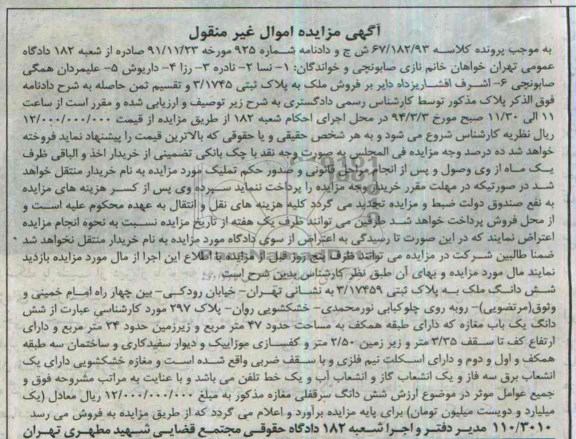 آگهی مزایده اموال غیر منقول
به موجب پرونده کلاسه ۶۷/۱۸۲/۹۳ ش ج و دادنامه شماره ۹۲۵ مورخه ۹۱/۱۱/۲۳ صادره از شعبه ۱۸۲ دادگاه
عمومی تهران خواهان خانم نازی صابونچی و خواندگان: ۱- نسا ۲- نادره ۳- رزا ۴- داریوش ۵- علیمردان همگی
صابونچی ۶- اشرف افشاریزداه دایر بر فروش ملک به پلاک ثبتی ۳/۱۷۴۵ و تقسیم ثمن حاصله به شرح دادنامه
فوق الذکر پلاک مذکور توسط کارشناس رسمی دادگستری به شرح زیر توصیف و ارزیابی شده و مقرر است از ساعت
۱۱ الی ۱۱/۳۰ صبح مورخ ۹۴/۳/۳ در محل اجرای احکام شعبه ۱۸۲ از طریق مزایده از قیمت ۱۲/۰۰۰/۰۰۰/۰۰۰
ریال نظریه کارشناس شروع می شود و به هر شخص حقیقی و یا حقوقی که بالاترین قیمت را پیشنهاد نماید فروخته
خواهد شد ده درصد وجه مزایده فی المجلس به صورت وجه نقد یا چک بانکی تضمینی از خریدار اخذ و الباقی ظرف
یک ماه از وی وصول و پس از انجام تشریفات قانونی و صدور حکم تملیک مورد مزایده به نام خریدار منتقل خواهد
شد در صورتیکه در مهلت مقرر خریدار وجه مزایده را پرداخت ننماید سپرده وی پس از کسر هزینه های مزایده
به نفع صندوق دولت ضبط و مزایده تجدید می گردد کلیه هزینه های نقل و انتقال به عهده محکوم علیه است و
از محل فروش پرداخت خواهد شد طرفین می توانند ظرف یک هفته از تاریخ مزایده نسبت به نحوه انجام مزایده
اعتراض نمایند که در این صورت تا رسیدگی به اعتراض از سوی دادگاه مورد مزایده به نام خریدار منتقل نخواهد شد
ضمنا طالبین شرکت در مزایده می توانند ظرف پنج روز قبل از مزایده با اطلاع این اجرا از مال مورد مزایده بازدید
نمایند مال مورد مزایده و بهای آن طبق نظر کارشناس بدین شرح است
شش دانگ ملک به پلاک ثبتی ۳/۱۷۴۵۹ به نشانی تهران- خیابان رودکی- بین چهار راه امام خمینی و
وثوق(مرتضوی)- روبه روی چلوکبابی نورمحمدی- خشکشویی روان- پلاک ۲۹۷ مورد کارشناسی عبارت از شش
دانگ یک باب مغازه که دارای طبقه همکف به مساحت حدود ۴۷ متر مربع و زیرزمین حدود ۲۴ متر مربع و دارای
ارتفاع کف تا سقف ۳/۳۵ متر و زیر زمین ۲/۵۰ متر و کفسازی موزاییک و دیوار سفیدکاری و ساختمان سه طبقه
همکف و اول و دوم و دارای اسکلت نیم فلزی و با سقف ضربی واقع شده است و مغازه خشکشویی دارای یک
انشعاب برق سه فاز و یک انشعاب گاز و انشعاب آب و یک خط تلفن می باشد و با عنایت به مراتب مشروحه فوق و
جمیع عوامل موثر در موضوع ارزش شش دانگ سرقفلی مغازه مذکور به مبلغ ۱۲/۰۰۰/۰۰۰/۰۰۰ ریال معادل (یک
میلیارد و دویست میلیون تومان) برای پایه مزایده برآورد و اعلام می گردد که از طریق مزایده به فروش می رسد
۱۱۰/۳۰۱۰ مدیر دفتر و اجرا شعبه ۱۸۲ دادگاه حقوقی مجتمع قضایی شهید مطهری تهران